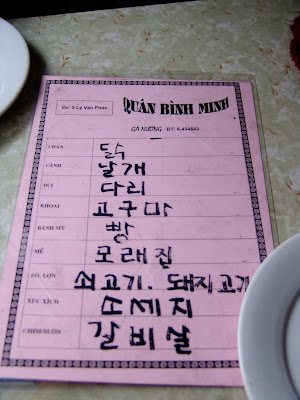 Đc: 5 Lý Văn Phức
QUÁN BÌNH MINH
GÀ NƯỚNG - ĐT: 8.434693
CHÂN 닭
CÁNH 날개
ĐÙI 다리
KHOAI 고구마
BÁNH MỲ 빵
MỀ 모래집
BÒ, LỢN 쇠고기. 돼지고기
XÚC XÍCH 소세지
CHIM/SƯỜN 갈비살